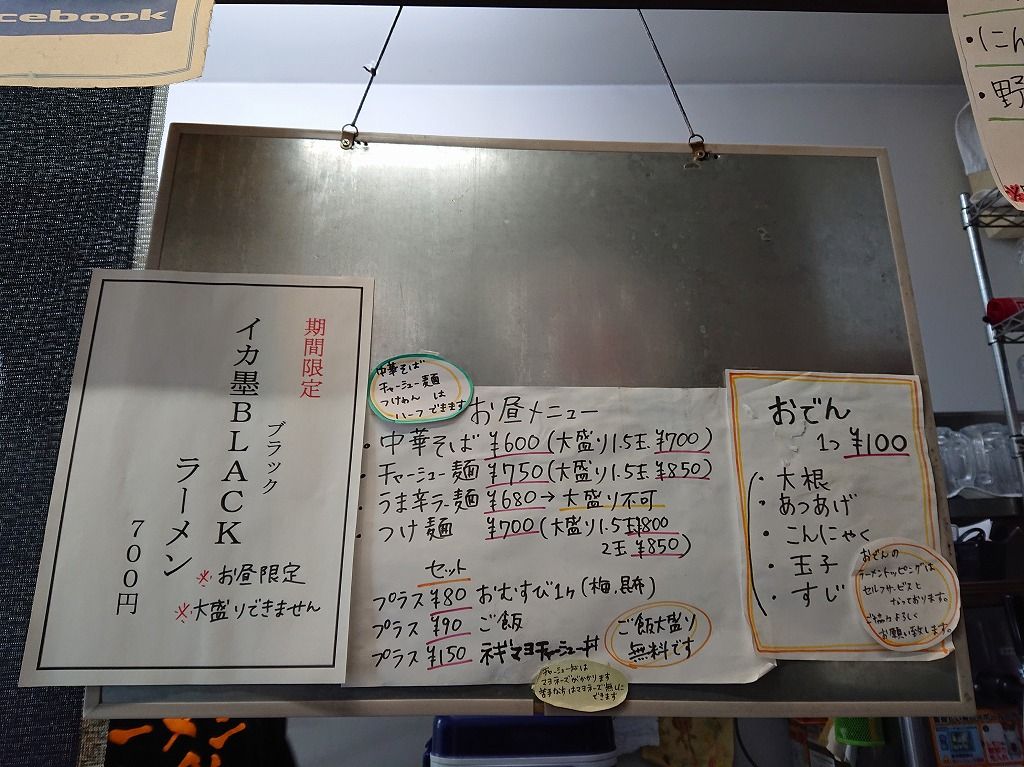 cebook
・にん
・野
期間限定
ブラック
イカ墨BLACK
ラーメン
700円
※お昼限定
※大盛りできません
中華そば
チャーシュー麺
つけめん は
ハーフできます
お昼メニュー
・中華そば ¥600(大盛り1.5玉 ¥700)
・チャーシュー麺 ¥750(大盛り1.5玉 ¥850)
・うま辛ラー麺 ¥680→大盛り不可
・つけ麺 ¥700(大盛り1.5玉¥800
2玉 ¥850)
セット
プラス ¥80 おむすび1ヶ(梅,昆布)
プラス ¥90 ご飯
プラス ¥150 ネギマヨチャーシュー丼
ご飯大盛り
無料です
チャーシュー丼は
マヨネーズがかかります
苦手な方はマヨネーズ無しに
できます
おでん
1つ ¥100
・大根
・あつあげ
・こんにゃく
・玉子
・すじ
おでんの
ラーメントッピングは
セルフサービスと
なっております。
ご協力よろしく
お願い致します。